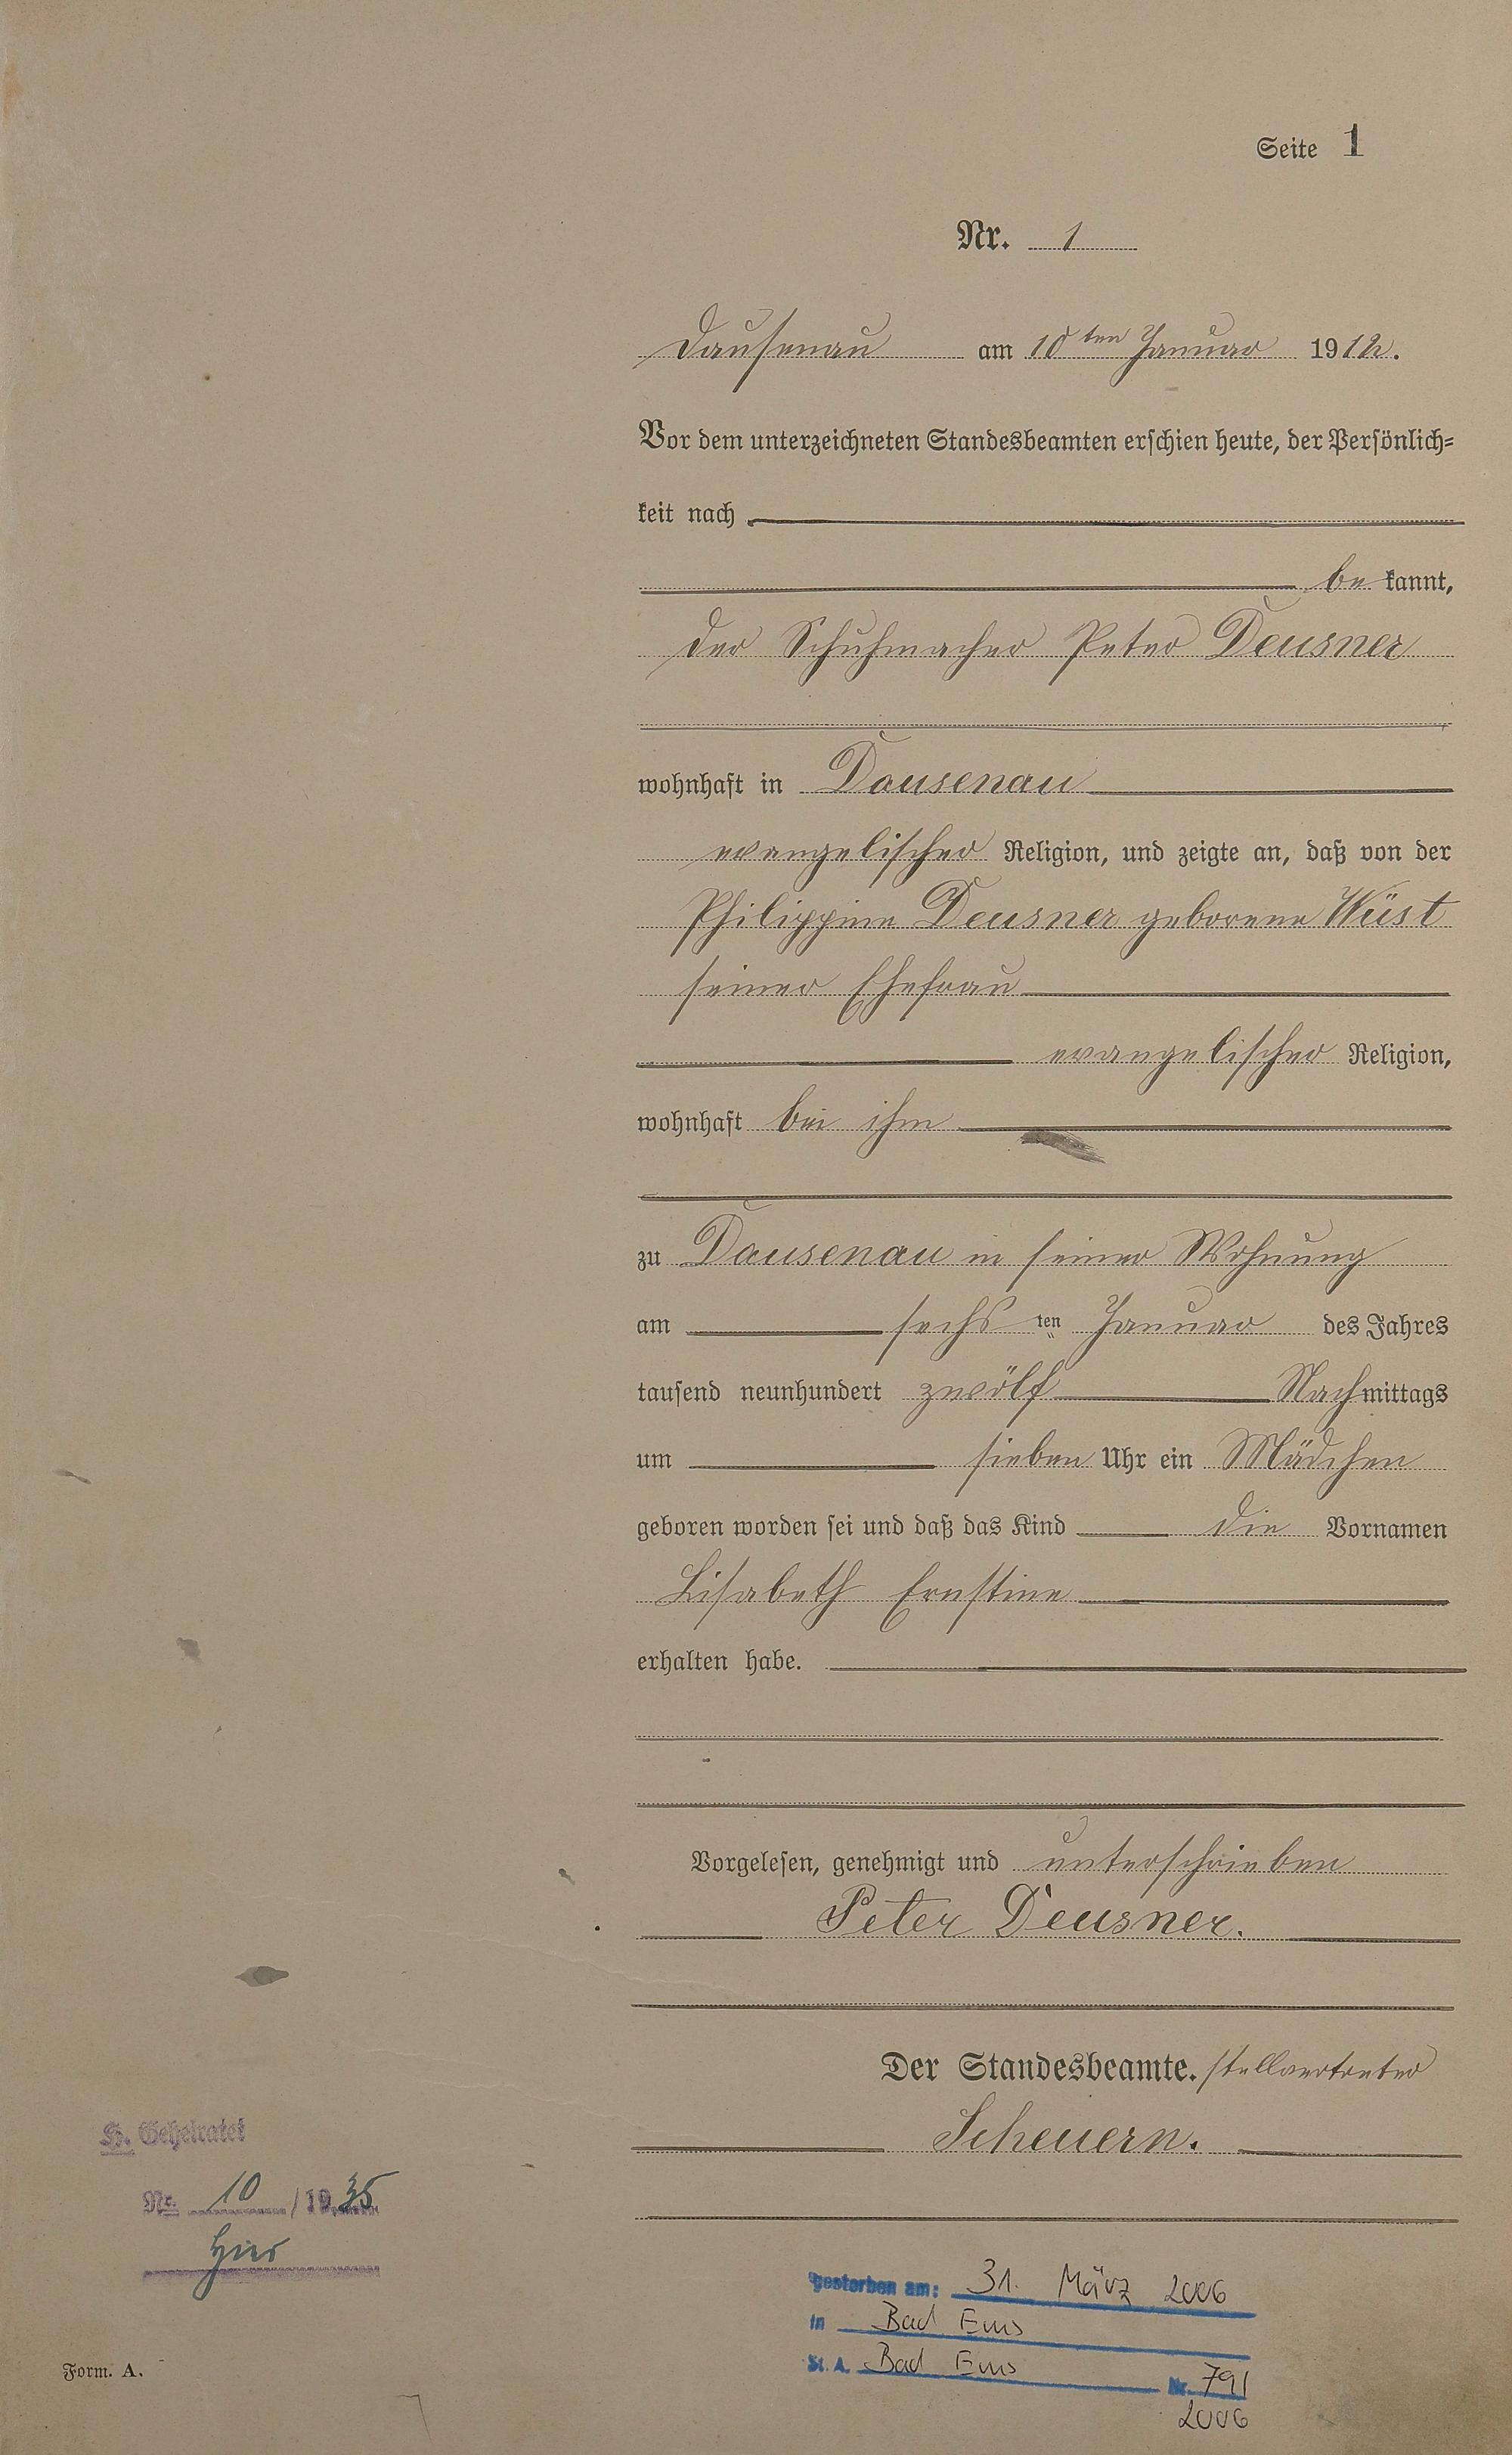 Seite 1
Nr. 1
Dausenau am 10ten Januar 1912.
Vor dem unterzeichneten Standesbeamten erschien heute, der Persönlich-
keit nach
be kannt,
der Schuhmacher Peter Deusner
wohnhaft in Dausenau
evangelischer Religion, und zeigte an, daß von der
Philippine Deusner geborene Wüst
seiner Ehefrau
evangelischer Religion,
wohnhaft bei ihm
zu Dausenau in seiner Wohnung
am sechs ten Januar des Jahres
tausend neunhundert zwölf Nachmittags
um sieben Uhr ein Mädchen
geboren worden sei und daß das Kind die Vornamen
Lisabeth Ernstine
erhalten habe.
Vorgelesen, genehmigt und unterschrieben
Peter Deusner.
Der Standesbeamte. stellvertreter
Scheuern.
H. Geheiratet
Nr. 10 / 1935
hier
gestorben am: 31. März 2006
in Bad Ems
St. A. Bad Ems Nr. 791
2006
Form. A.